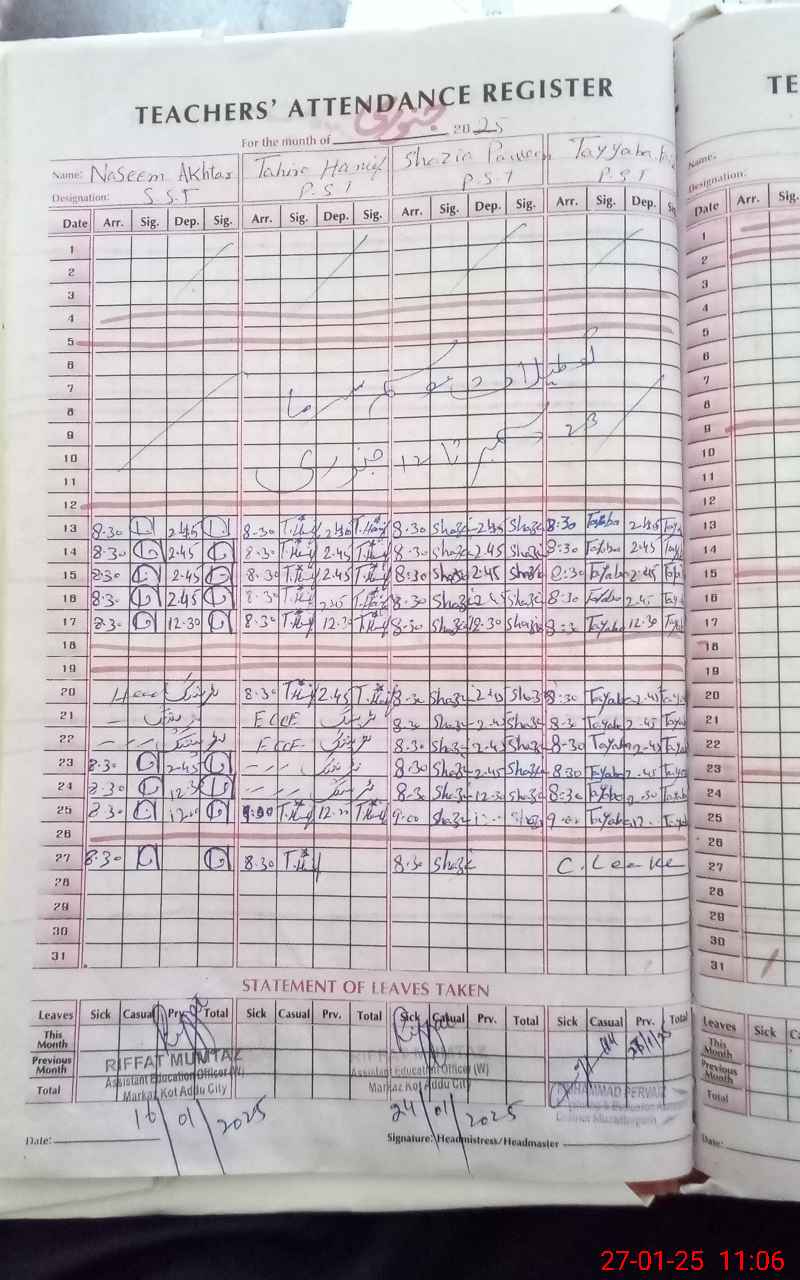 TEACHERS' ATTENDANCE REGISTER
TE
For the month of جنوری 2025
Name: Naseem Akhtar Tahira Hanif Shazia Parveen Tayyaba
Designation: S.S.T P.S.T P.S.T P.S.T
Name:
Designation:
Date Arr. Sig. Dep. Sig. Arr. Sig. Dep. Sig. Arr. Sig. Dep. Sig. Arr. Sig. Dep. Sig.
Date Arr. Sig.
1
2
3
4
5
6
7 تعطیلات موسم سرما
8
9
10 23 دسمبر تا 12 جنوری
11
12
13 8.30 2.45 8.30 T.Hanif 2.45 T.Hanif 8.30 Shazi 2.45 Shazi 8:30 Tayaba 2.45 Taya
14 8.30 2.45 8.30 T.Hanif 2.45 T.Hanif 8.30 Shazi 2.45 Shazi 8:30 Tayaba 2.45 Taya
15 8.30 2.45 8.30 T.Hanif 2.45 T.Hanif 8:30 Shazi 2.45 Shazi 8:30 Tayaba 2.45 Taya
16 8.30 2.45 8.30 T.Hanif 2.45 T.Hanif 8.30 Shazi 2.45 Shazi 8:30 Tayaba 2.45 Taya
17 8.30 12.30 8.30 T.Hanif 12.30 T.Hanif 8.30 Shazi 12.30 Shazi 8:30 Tayaba 12.30 Taya
18
19
20 Head ٹریننگ 8.30 T.Hanif 2.45 T.Hanif 8.30 Shazi 2.45 Shazi 8:30 Tayaba 2.45 Taya
21 ٹریننگ ECCE ٹریننگ 8.30 Shazi 2.45 Shazi 8.30 Tayaba 2.45 Taya
22 ٹریننگ ECCE ٹریننگ 8.30 Shazi 2.45 Shazi 8-30 Tayaba 2.45 Taya
23 8.30 2.45 ٹریننگ 8.30 Shazi 2.45 Shazi 8.30 Tayaba 2.45 Taya
24 8.30 12.30 ٹریننگ 8.30 Shazi 12.30 Shazi 8:30 Tayaba Taya
25 8.30 9.00 T.Hanif T.Hanif 9.00 Shazi Shazi 9.00 Tayaba Taya
26
27 8.30 8.30 T.Hanif 8.30 Shazi C. Leave
28
29
30
31
1
2
3
4
5
6
7
8
9
10
11
12
13
14
15
16
17
18
19
20
21
22
23
24
25
26
27
28
29
30
31
STATEMENT OF LEAVES TAKEN
Leaves Sick Casual Prv. Total Sick Casual Prv. Total Sick Casual Prv. Total Sick Casual Prv. Total
This Month
Previous Month
Total
Leaves Sick
This Month
Previous Month
Total
RIFFAT MUMTAZ
Assistant Education Officer (W)
Markaz Kot Addu City
16/01/2025
RIFFAT MUMTAZ
Assistant Education Officer (W)
Markaz Kot Addu City
24/01/2025
MUHAMMAD PERVAIZ
District Muzaffargarh
Date:
Signature: Headmistress/Headmaster
Date:
27-01-25 11:06